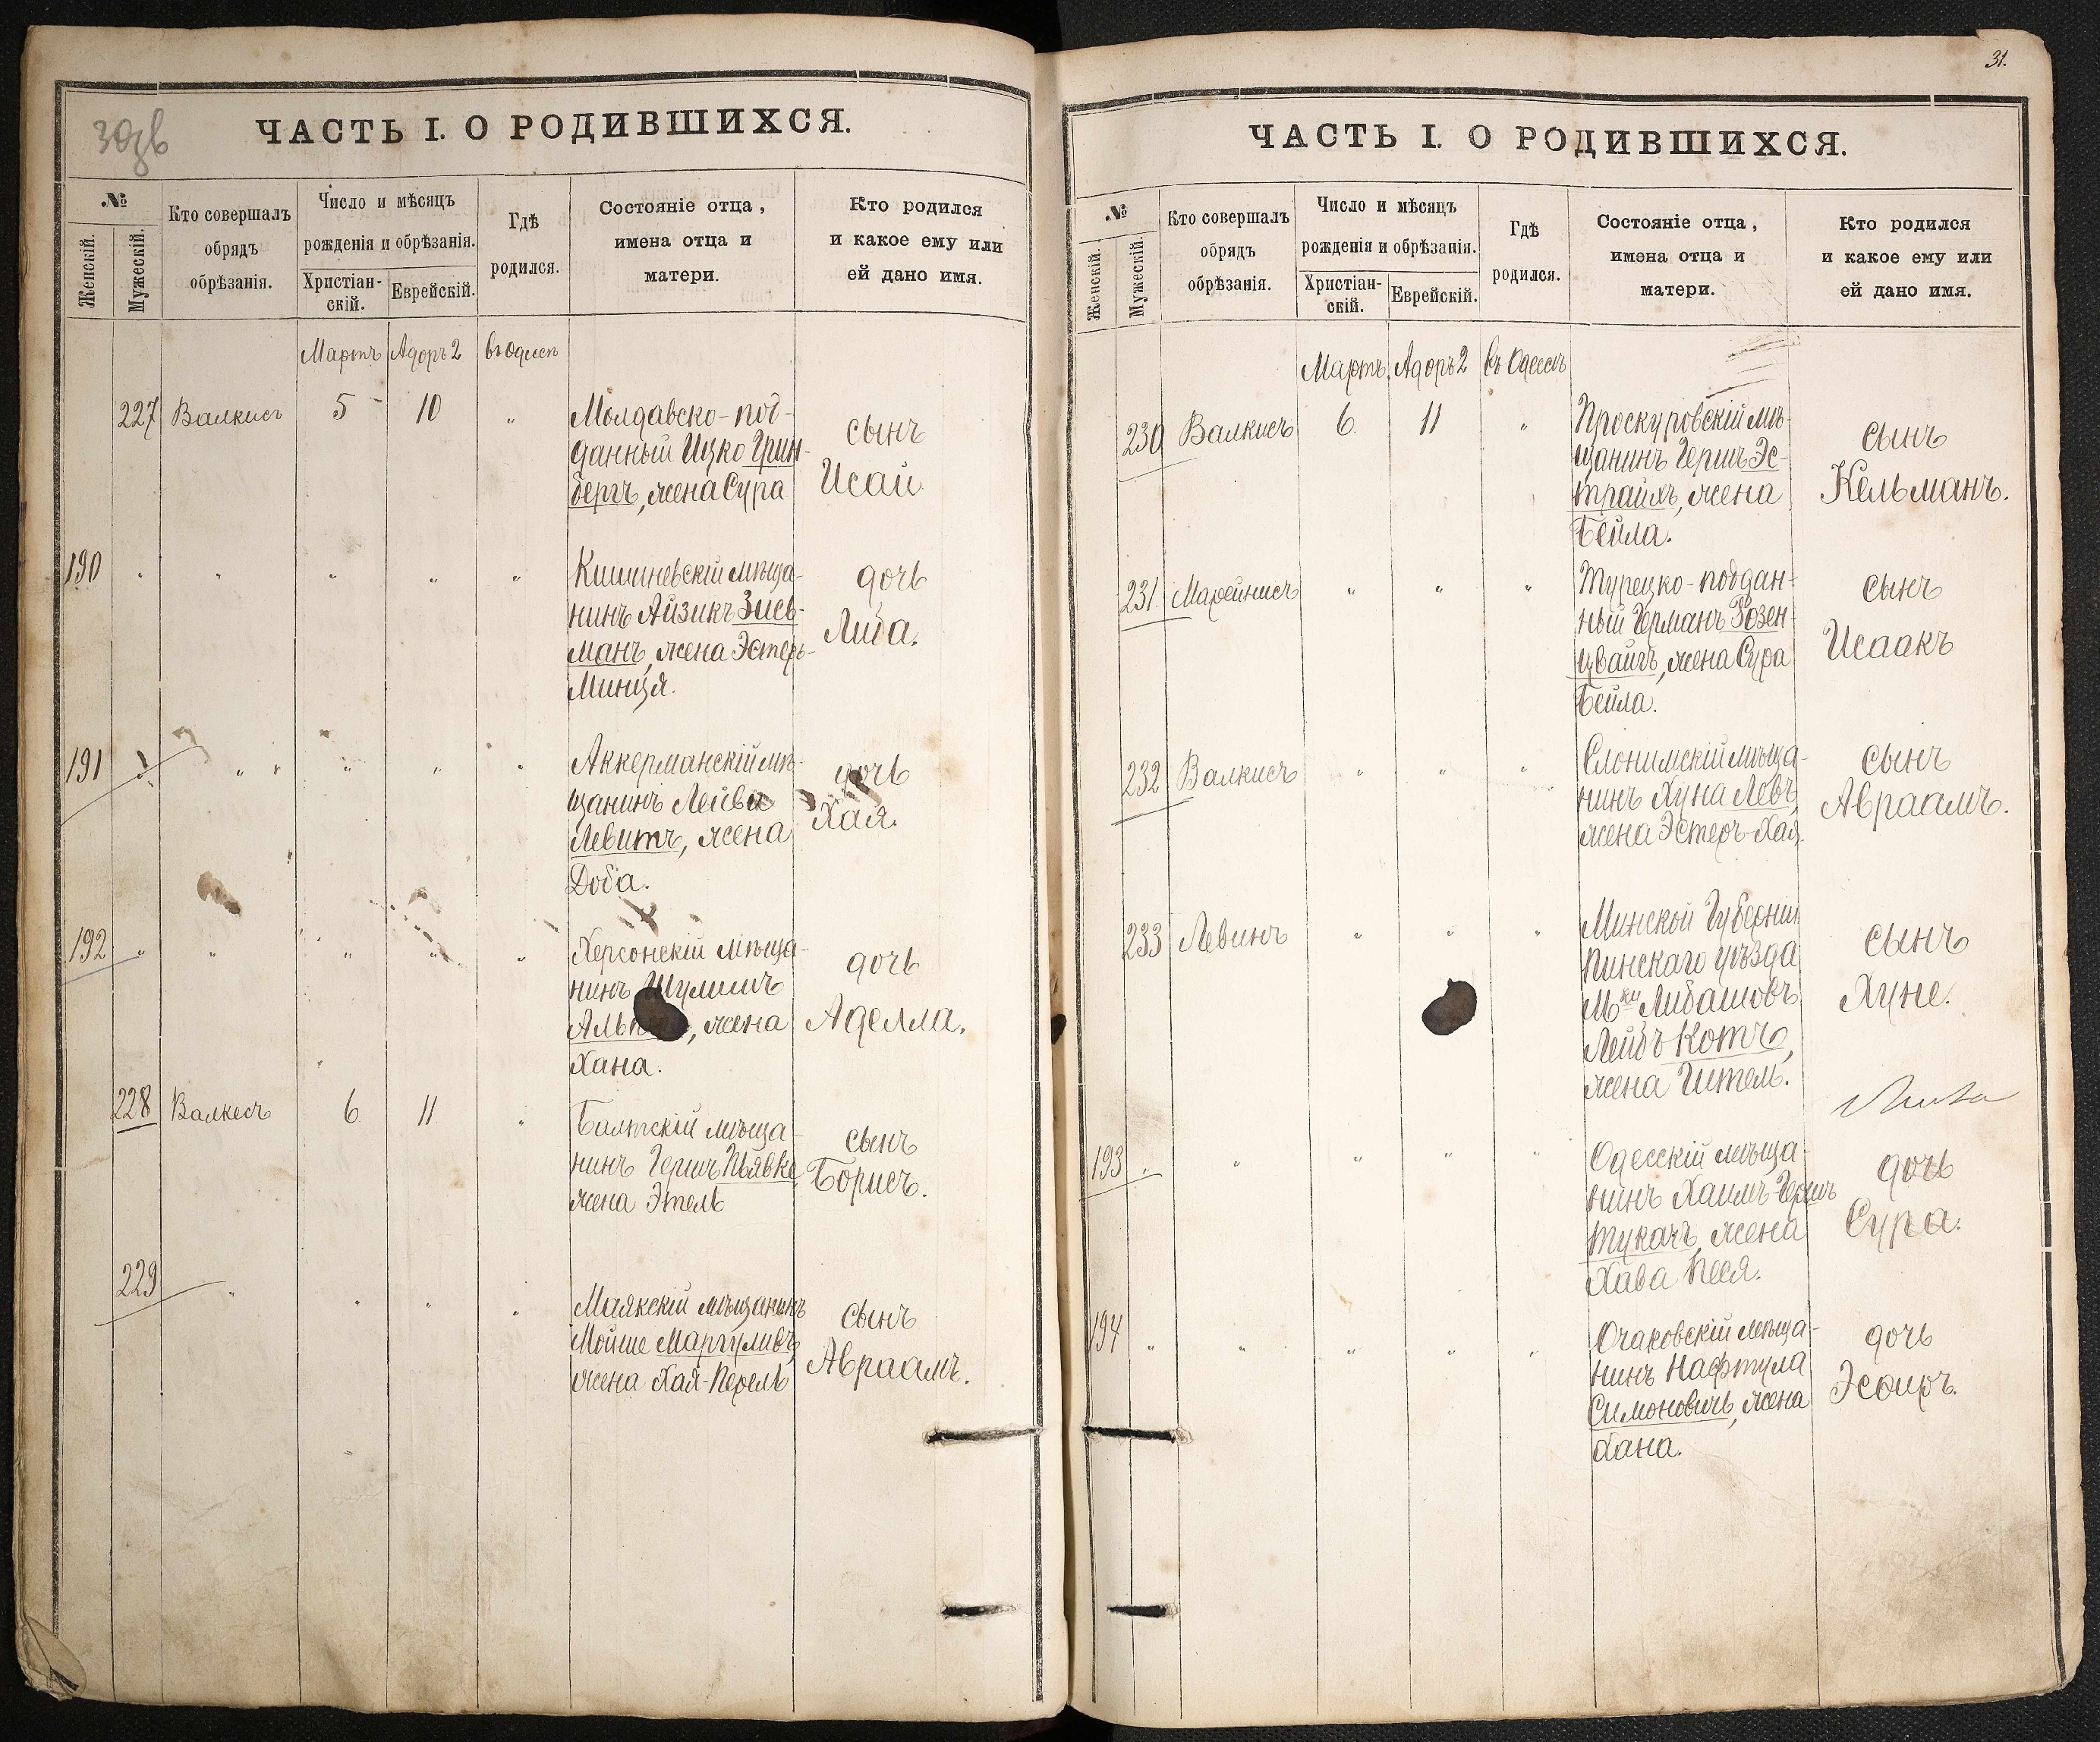 30зв
ЧАСТЬ I. О РОДИВШИХСЯ.
№
Женскій.
Мужескій.
Кто совершалъ
обрядъ
обрѣзанія.
Число и мѣсяцъ
рожденія и обрѣзанія.
Христіан-
скій.
Еврейскій.
Гдѣ
родился.
Состояніе отца,
имена отца и
матери.
Кто родился
и какое ему или
ей дано имя.
Мартъ Адоръ 2 въ Одессѣ
227 Валкисъ 5 10 " Молдавско-под-
данный Ицко Грин-
бергъ, жена Сура
сынъ
Исай
190 " " " " " Кишиневскій мѣща-
нинъ Айзикъ Зись-
манъ, жена Эстеръ-
Минця.
дочь
Либа.
191 " " " " " Аккерманскій мѣ-
щанинъ Лейва
Левитъ, жена
Доба.
дочь
Хая.
192 " " " " " Херсонскій мѣща-
нинъ Шулимъ
, жена
Хана.
дочь
Аделла.
228 Валкесъ 6 11 " Балтскій мѣща-
нинъ Гершъ Пьявке
жена Этель
сынъ
Борисъ.
229 " " " " Маякскій мѣщанинъ
Мойше Маргулисъ,
жена Хая-Перель
сынъ
Авраамъ.
31.
ЧАСТЬ I. О РОДИВШИХСЯ.
№
Женскій.
Мужескій.
Кто совершалъ
обрядъ
обрѣзанія.
Число и мѣсяцъ
рожденія и обрѣзанія.
Христіан-
скій.
Еврейскій.
Гдѣ
родился.
Состояніе отца,
имена отца и
матери.
Кто родился
и какое ему или
ей дано имя.
Мартъ Адоръ 2 въ Одессѣ
230 Валкисъ 6 11 " Проскуровскій мѣ-
щанинъ Гершъ Эс-
трайхъ, жена
Бейла.
сынъ
Кельманъ.
231 Марейнисъ " " " Турецко-поддан-
ный Германъ Розен-
цвайгъ, жена Сура
Бейла.
сынъ
Исаакъ
232 Валкисъ " " " Слонимскій мѣща-
нинъ Хуна Левъ,
жена Эстеръ-Хая.
сынъ
Авраамъ.
233 Левинъ " " " Минской Губерніи
Пинскаго уѣзда
Мки Любашовъ
Лейбъ Котъ,
жена Гитель.
сынъ
Хуне.
193 " " " " " Одесскій мѣща-
нинъ Хаимъ-Гершъ
Тукачъ, жена
Хава Песя.
дочь
Сура.
194 " " " " " Очаковскій мѣща-
нинъ Нафтула
Симоновичъ, жена
Хана.
дочь
Эсѳирь.